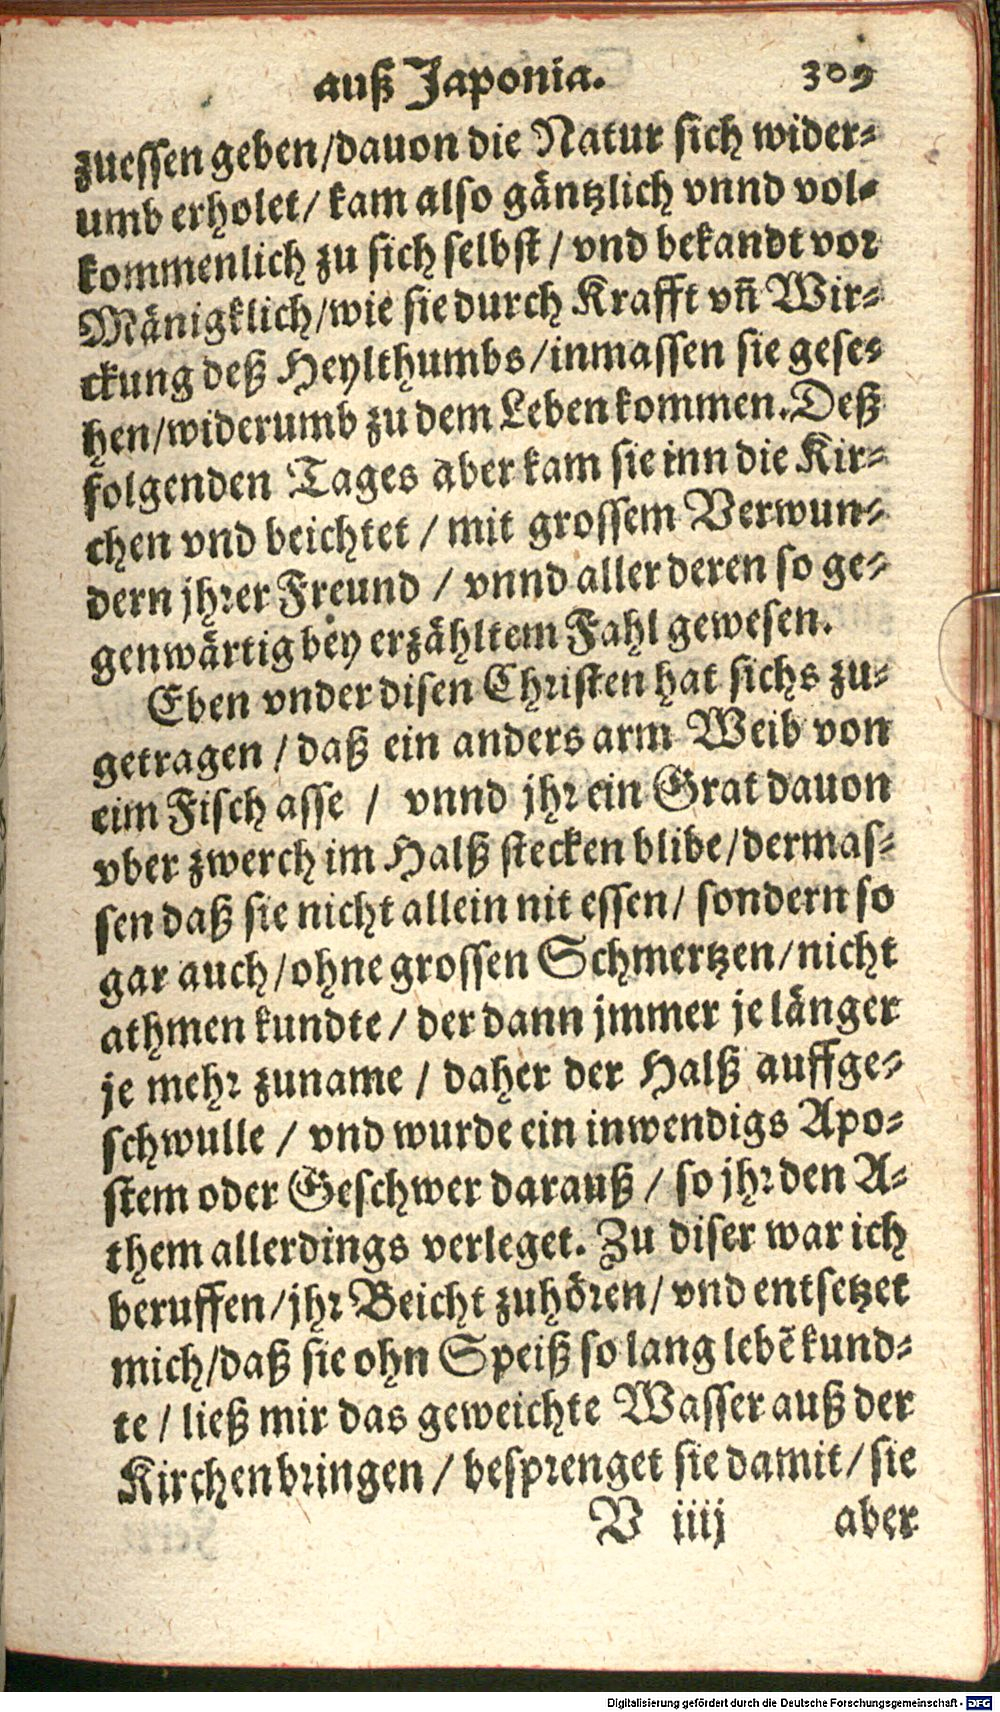 auß Japonia. 309
zuessen geben/dauon die Natur sich wider-
umb erholet/ kam also gäntzlich vnnd vol-
kommenlich zu sich selbst/ vnd bekandt vor
Mänigklich/wie sie durch Krafft vñ Wir-
ckung deß Heylthumbs/inmassen sie gese-
hen/widerumb zu dem Leben kommen. Deß
folgenden Tages aber kam sie inn die Kir-
chen vnd beichtet / mit grossem Verwun-
dern jhrer Freund / vnnd aller deren so ge-
genwärtig bey erzähltem Fahl gewesen.
Eben vnder disen Christen hat sichs zu-
getragen / daß ein anders arm Weib von
eim Fisch asse / vnnd jhr ein Grat dauon
vber zwerch im Halß stecken blibe/dermas-
sen daß sie nicht allein nit essen/ sondern so
gar auch/ohne grossen Schmertzen/nicht
athmen kundte/ der dann jmmer je länger
je mehr zuname / daher der Halß auffge-
schwulle / vnd wurde ein inwendigs Apo-
stem oder Geschwer darauß / so jhr den A-
them allerdings verleget. Zu diser war ich
beruffen/jhr Beicht zuhören/ vnd entsetzet
mich/daß sie ohn Speiß so lang lebẽ kund-
te / ließ mir das geweichte Wasser auß der
Kirchen bringen / besprenget sie damit/ sie
V iiij aber
Digitalisierung gefördert durch die Deutsche Forschungsgemeinschaft - DFG